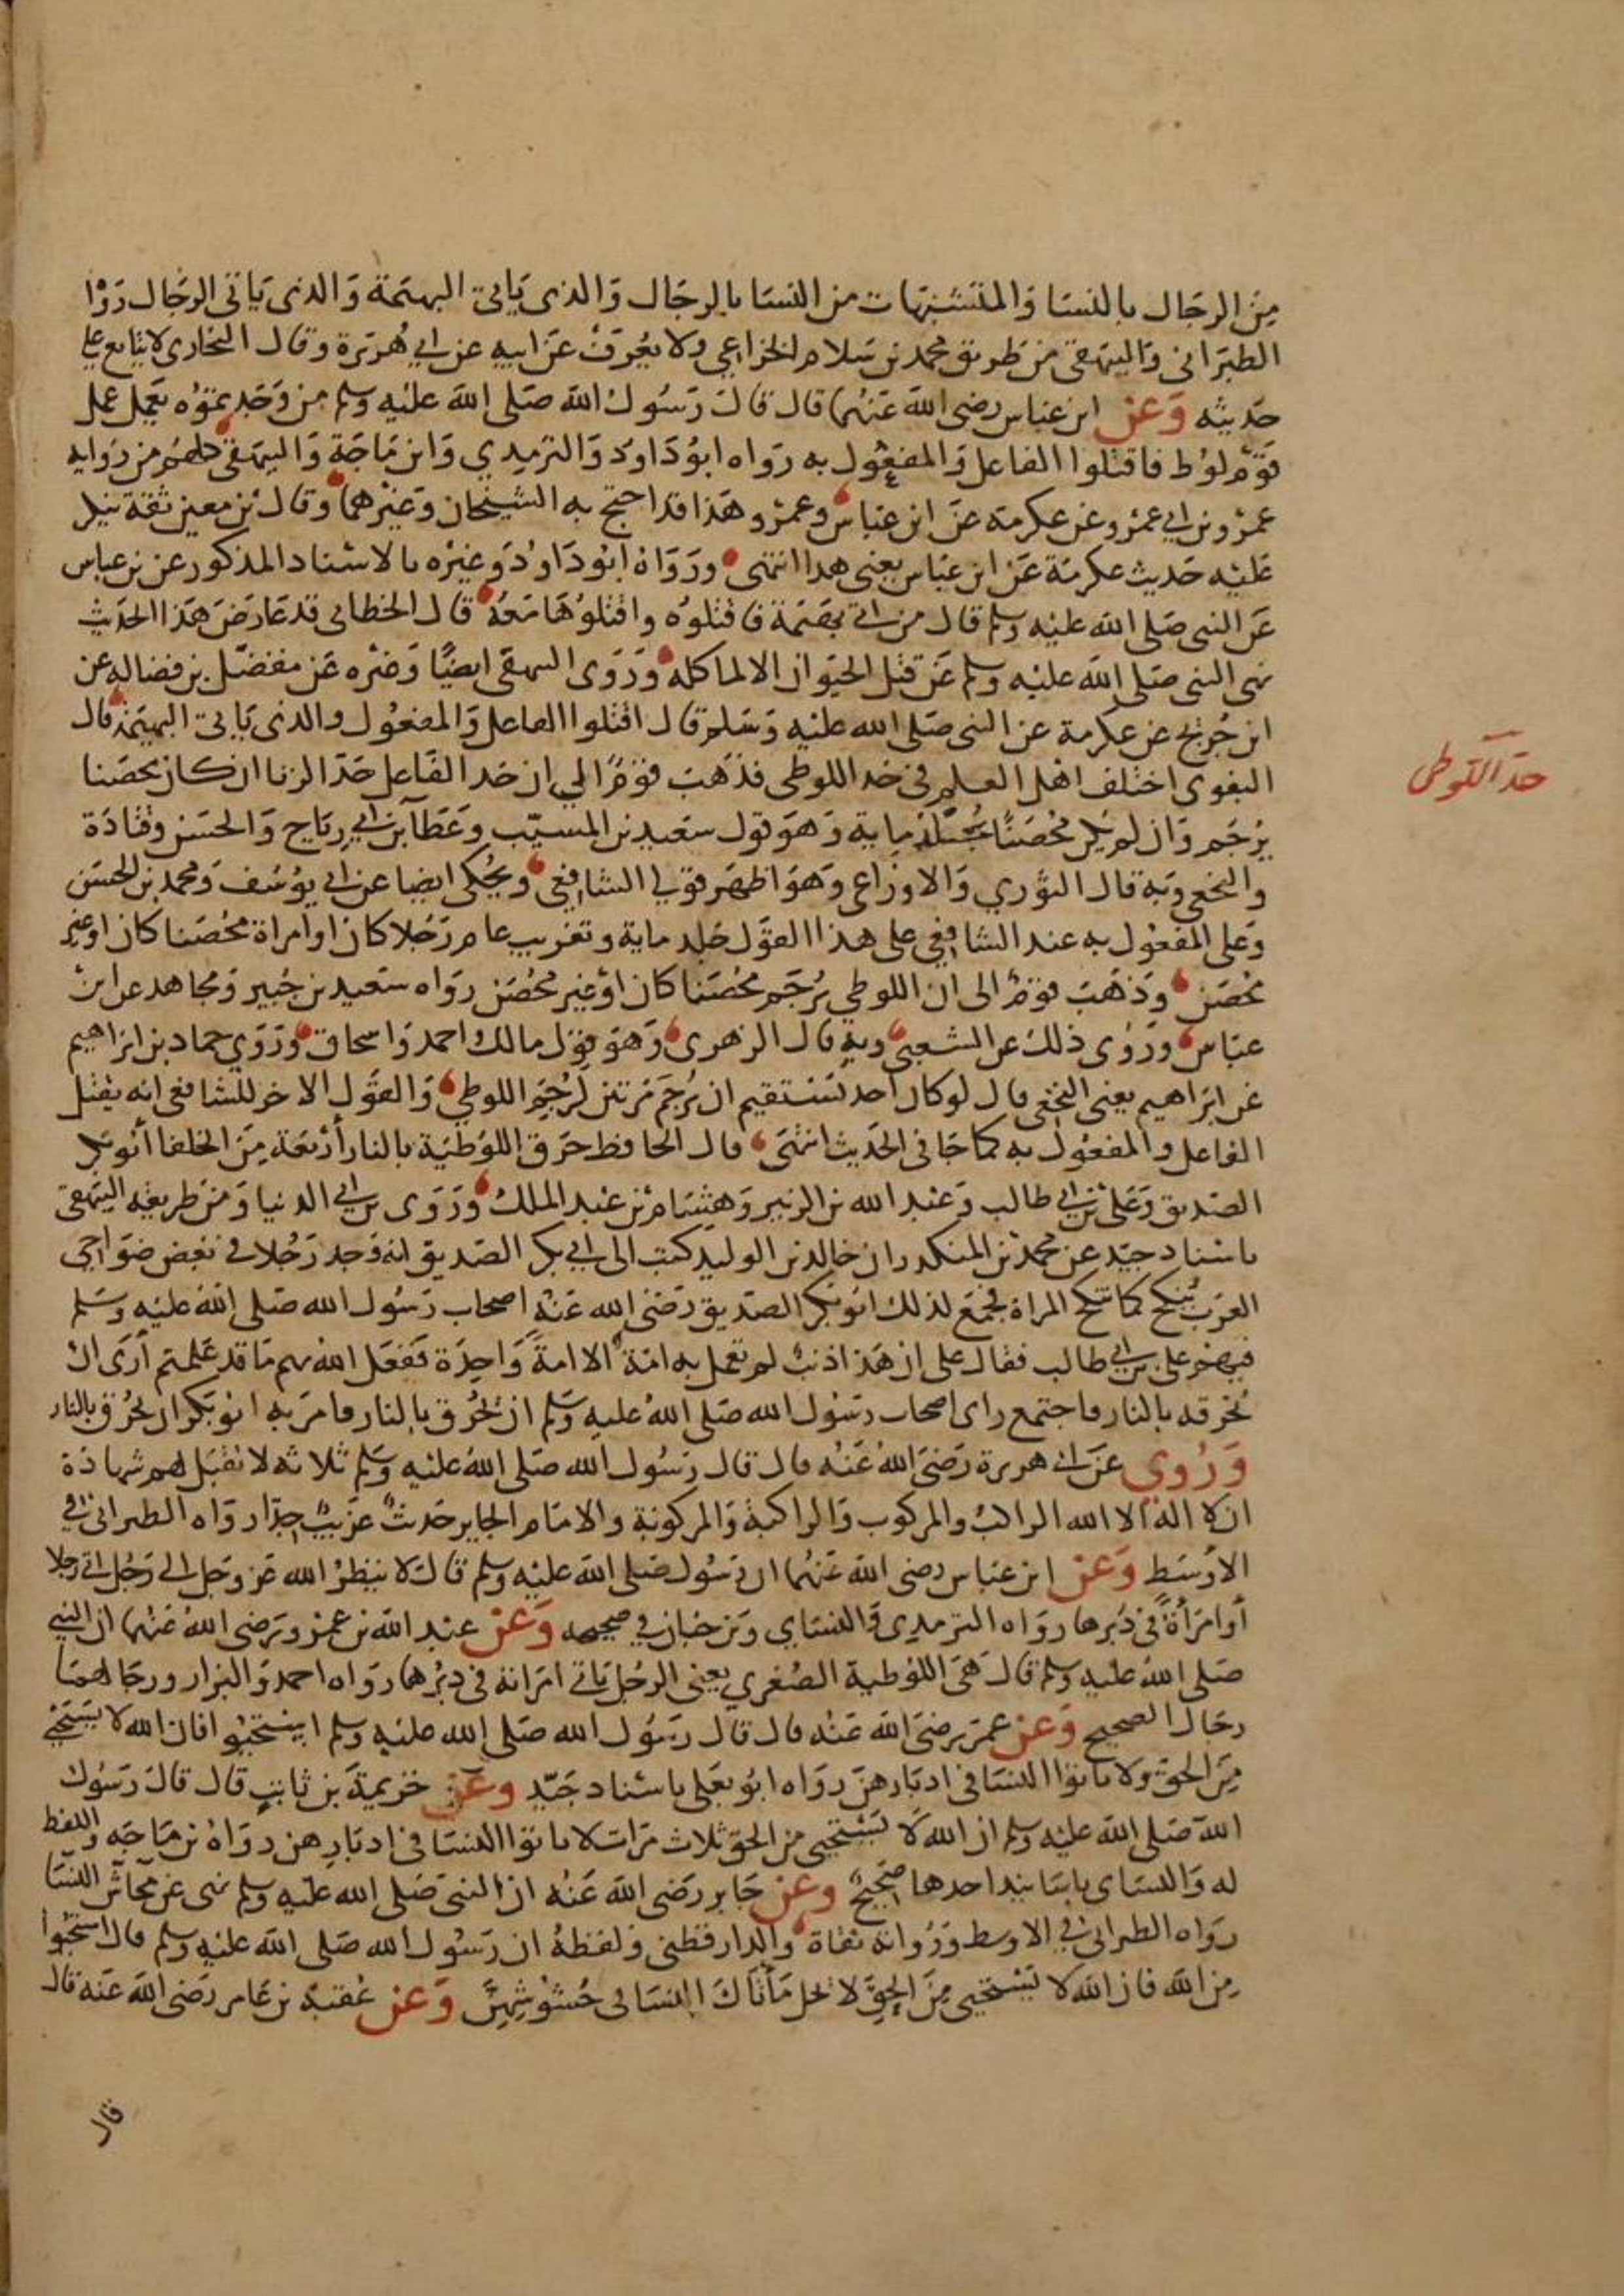 من الرجال بالنسا والمتشبهات من النسا بالرجال والذى ياتي البهيمة والذى ياتى الرجال روا
الطبرانى والبيهقى من طريق محمد بن سلام الخزاعي ولا يعرف عن ابيه عن ابي هريرة وقال البخارى لا يتابع على
حديثه وعن ابن عباس رضى الله عنهما قال قال رسول الله صلى الله عليه وسلم من وجدتموه يعمل عمل
قوم لوط فاقتلوا الفاعل والمفعول به رواه ابو داود والترميدي وابن ماجة والبيهقى كلهم من رواية
عمرو بن ابي عمرو عن عكرمة عن ابن عباس وعمرو هذا قد احتج به الشيخان وغيرهما وقال بن معين ثقة ينكر
عليه حديث عكرمة عن ابن عباس يعنى هدا انتهى ورواه ابو داود وغيره بالاسناد المذكور عن بن عباس
عن النبى صلى الله عليه وسلم قال من اتى بهيمة فاقتلوه واقتلوها معه قال الخطابى قد عارض هذا الحديث
نهى النبى صلى الله عليه وسلم عن قتل الحيوان الا لماكله وروى البيهقى ايضا وغيره عن مفضل بن فضاله عن
ابن جريج عن عكرمة عن النبى صلى الله عليه وسلم قال اقتلوا الفاعل والمفعول والدى ياتي البهيمة قال
البغوى اختلف اهل العلم فى حد اللوطى فذهب قوم الي ان حد الفاعل حد الزنا ان كان محصنا
حد اللوطى
يرجم وان لم يكن محصنا يجلد ماية وهو قول سعيد بن المسيب وعطا بن ابي رباح والحسن وقتادة
والنخعى وبه قال الثوري والاوزاعى وهو اظهر قولي الشافعى ويحكى ايضا عن ابي يوسف ومحمد بن الحسن
وعلى المفعول به عند الشافعى على هذا القول جلد ماية وتغريب عام رجلا كان او امراة محصنا كان او غير
محصن وذهب قوم الى ان اللوطي يرجم محصنا كان او غير محصن رواه سعيد بن جبير ومجاهد عن ابن
عباس وروى ذلك عن الشعبى وبه قال الزهرى وهو قول مالك واحمد واسحاق وروى حماد بن ابراهيم
عن ابراهيم يعنى النخعى قال لو كان احد يستقيم ان يرجم مرتين لرجم اللوطى والقول الاخر للشافعى انه يقتل
الفاعل والمفعول به كما جا فى الحديث انتهى قال الحافظ حرق اللوطية بالنار أربعة من الخلفا أبو بكر
الصديق وعلى بن ابي طالب وعبد الله بن الزبير وهشام بن عبد الملك وروى بن ابي الدنيا ومن طريقه البيهقى
باسناد جيد عن محمد بن المنكدر ان خالد بن الوليد كتب الى ابي بكر الصديق انه وجد رجلا في بعض ضواحى
العرب ينكح كما تنكح المراة فجمع لذلك ابو بكر الصديق رضى الله عنه اصحاب رسول الله صلى الله عليه وسلم
فيهم على بن ابي طالب فقال على ان هذا ذنب لم تعمل به امة الا امة واحدة ففعل الله بهم ما قد علمتم أرى ان
نحرقه بالنار فاجتمع راى اصحاب رسول الله صلى الله عليه وسلم ان يحرق بالنار فامر به ابو بكر ان يحرق بالنار
وروي عن ابي هريرة رضى الله عنه قال قال رسول الله صلى الله عليه وسلم ثلاثة لا تقبل لهم شهادة
ان لا اله الا الله الراكب والمركوب والراكبة والمركوبة والامام الجاير حديث غريب جدا رواه الطبرانى في
الاوسط وعن ابن عباس رضى الله عنهما ان رسول صلى الله عليه وسلم قال لا ينظر الله عز وجل الى رجل اتى رجلا
أو امرأة في دبرها رواه الترمدى والنساى وبن حبان في صحيحه وعن عبد الله بن عمرو رضى الله عنهما ان النبي
صلى الله عليه وسلم قال هى اللوطية الصغري يعنى الرجل ياتى امراته فى دبرها رواه احمد والبزار ورجالهما
رجال الصحيح وعن عمر رضى الله عنه قال قال رسول الله صلى الله عليه وسلم استحيوا فان الله لا يستحي
من الحق ولا تاتوا النسا فى ادبارهن رواه ابو يعلى باسناد جيد وعن خزيمة بن ثابت قال قال رسول
الله صلى الله عليه وسلم ان الله لا يستحيى من الحق ثلاث مرات لا تاتوا النسا فى ادبارهن رواه بن ماجه واللفظ
له والنساى باسانيد احدها صحيح وعن جابر رضى الله عنه ان النبى صلى الله عليه وسلم نهى عن محاش النسا
رواه الطبرانى في الاوسط ورواته ثقاة والدارقطنى ولفظه ان رسول الله صلى الله عليه وسلم قال استحيوا
من الله فان الله لا يستحيى من الحق لا تحل مأتاك النسا فى حشوشهن وعن عقبة بن عامر رضى الله عنه قال
قال